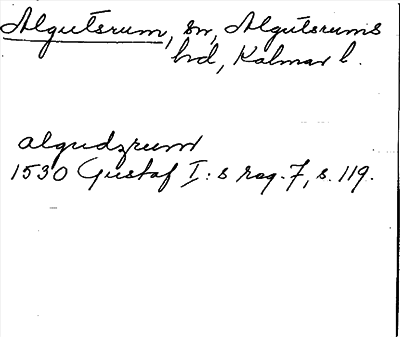 Algutsrum, sn, Algutsrums
hd, Kalmar l.
algudzrum
1530 Gustaf I:s reg. 7, s. 119.